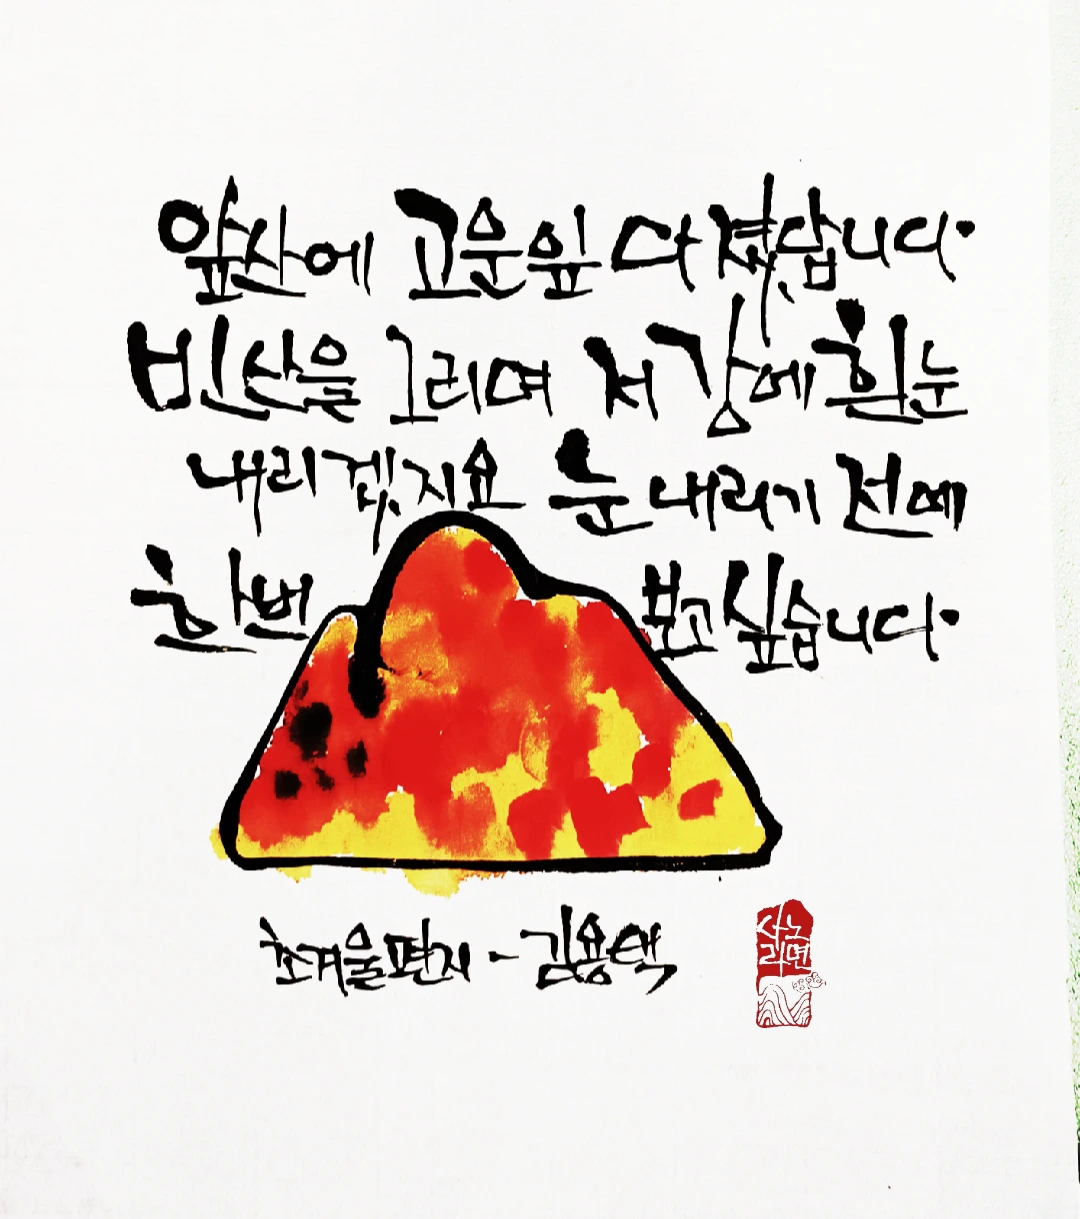 앞산에 고운잎 다 졌답니다.
빈산을 그리며 저 강에 흰눈
내리겠지요 눈 내리기 전에
한번 보고싶습니다.
초겨울편지 - 김용택